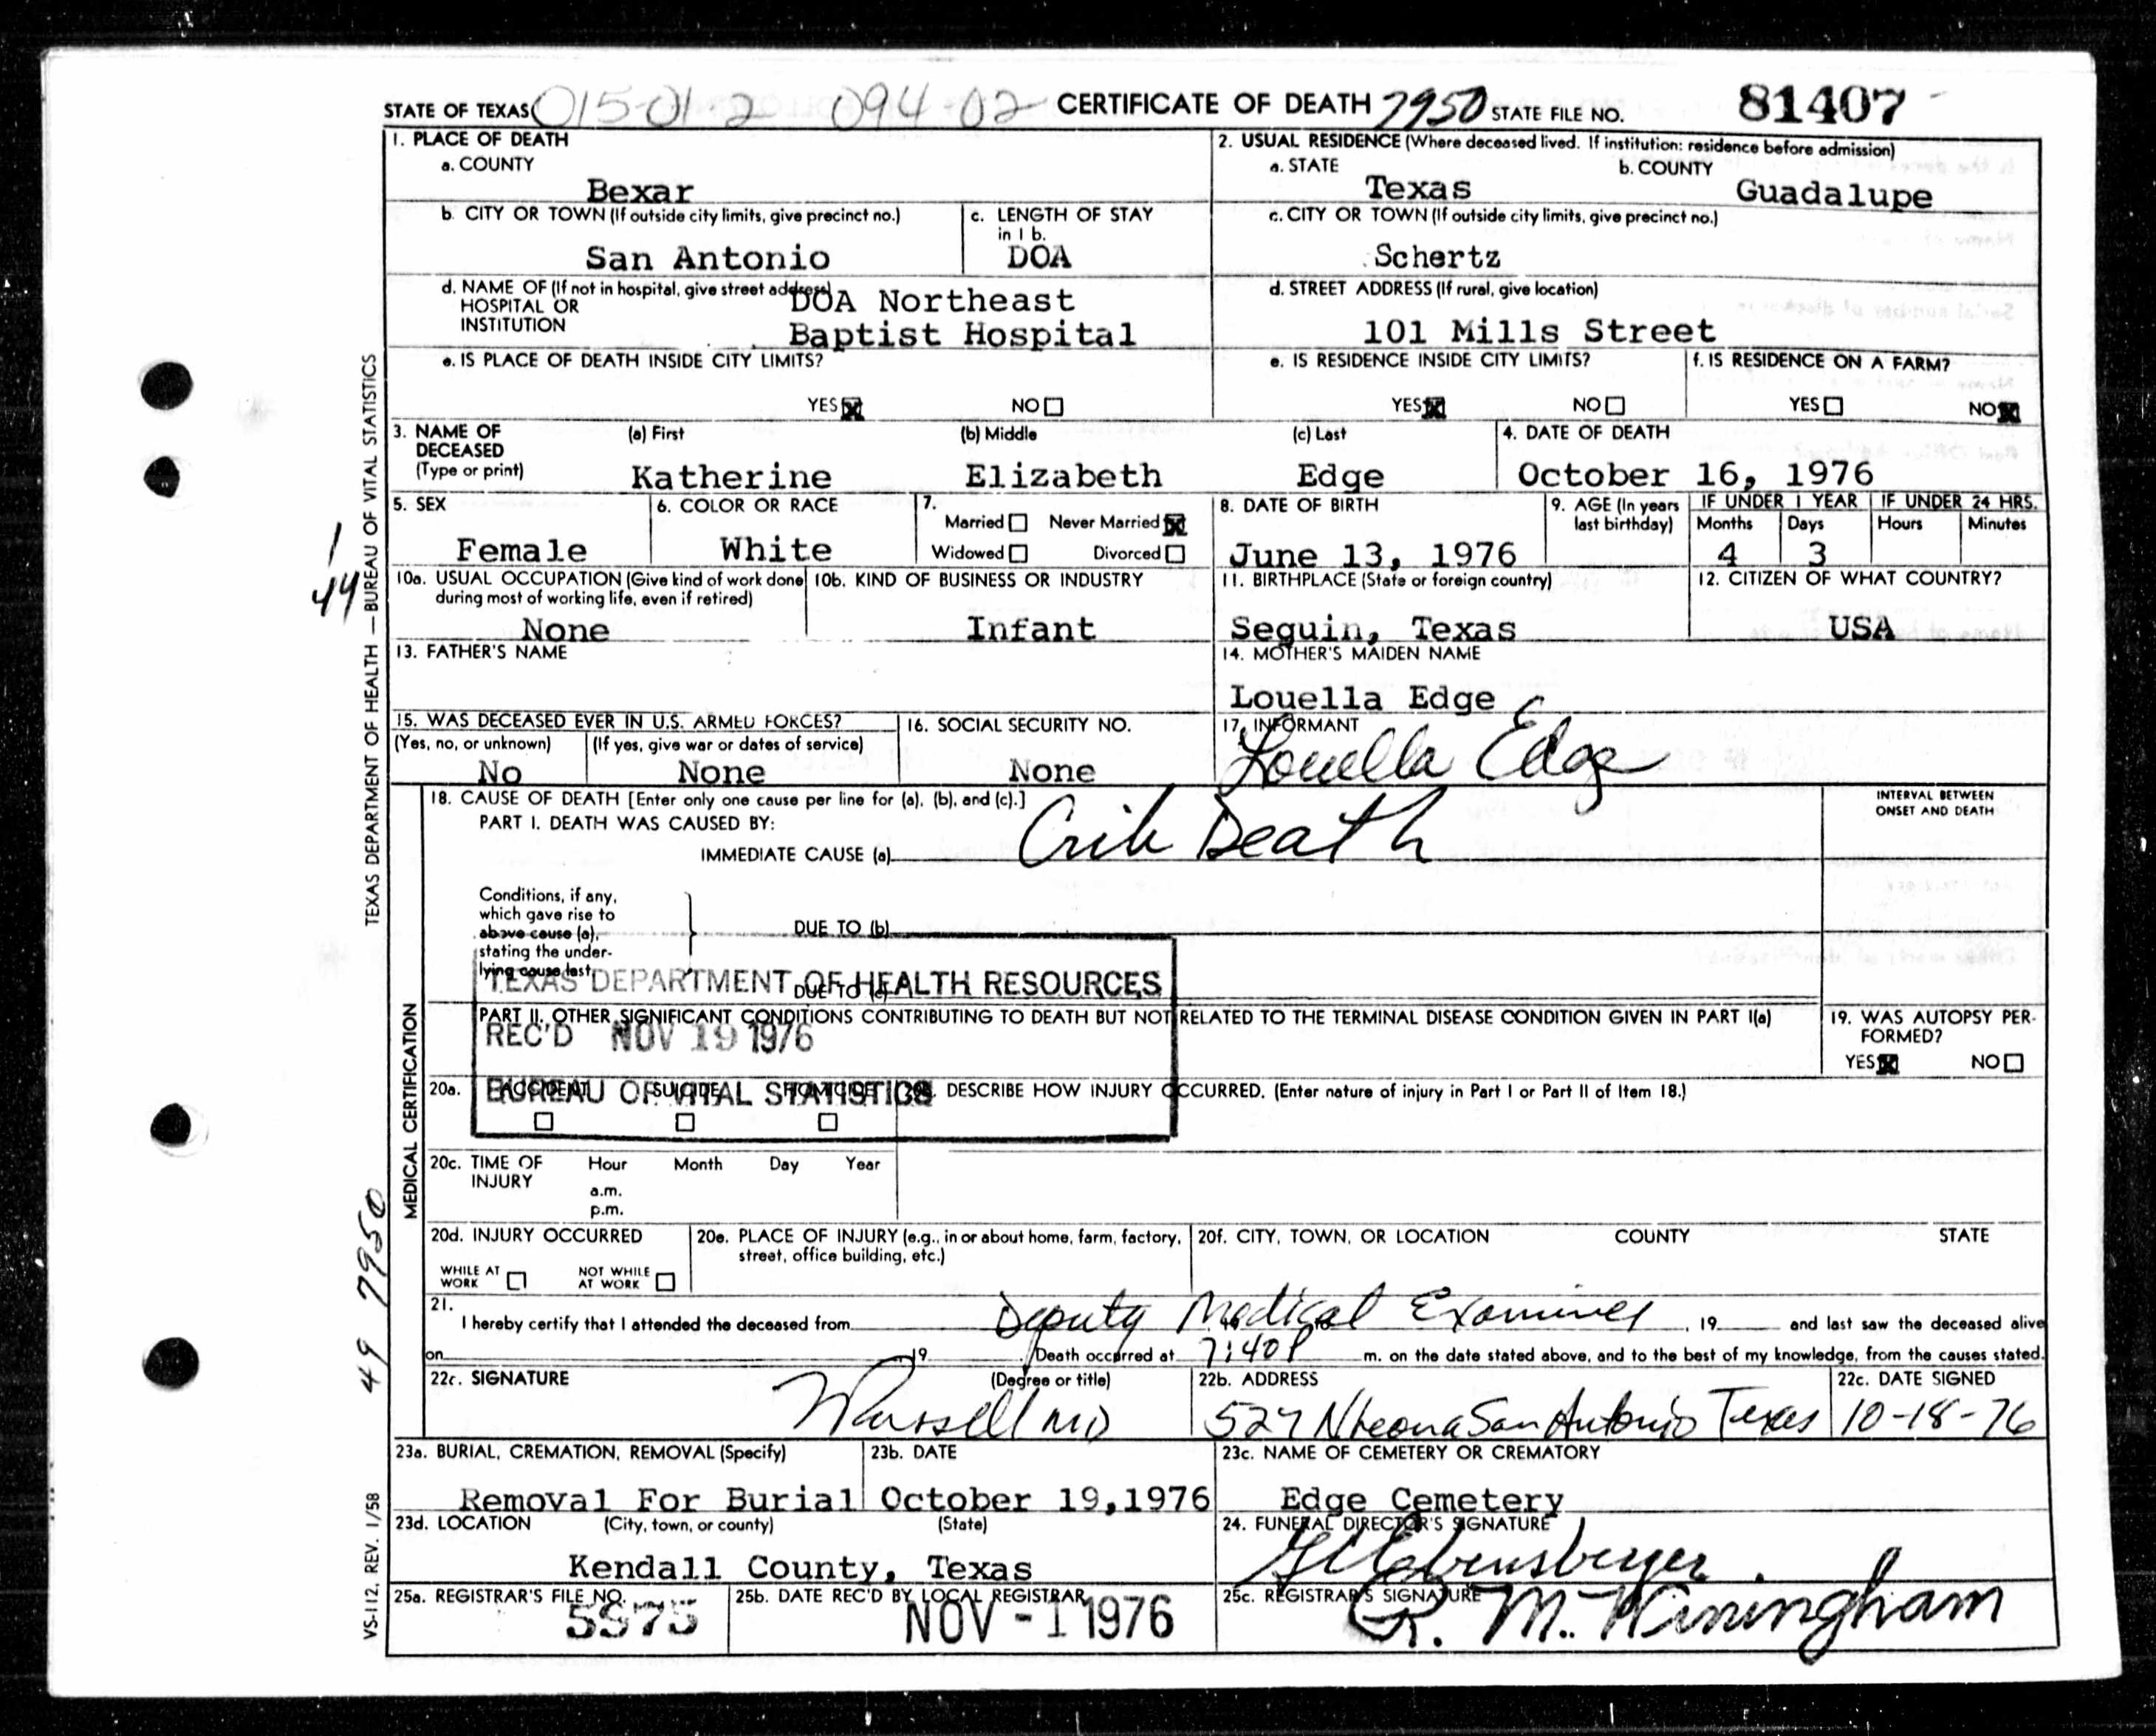 STATE OF TEXAS 015-01 2 094 02 CERTIFICATE OF DEATH 7950 STATE FILE NO. 81407
1. PLACE OF DEATH
a. COUNTY
Bexar
2. USUAL RESIDENCE (Where deceased lived. If institution: residence before admission)
a. STATE b. COUNTY
Texas Guadalupe
b. CITY OR TOWN (If outside city limits, give precinct no.)
San Antonio
c. LENGTH OF STAY
in 1 b.
DOA
c. CITY OR TOWN (If outside city limits, give precinct no.)
Schertz
d. NAME OF (If not in hospital, give street address)
HOSPITAL OR
INSTITUTION
DOA Northeast
Baptist Hospital
d. STREET ADDRESS (If rural, give location)
101 Mills Street
e. IS PLACE OF DEATH INSIDE CITY LIMITS?
YES NO
e. IS RESIDENCE INSIDE CITY LIMITS?
YES NO
f. IS RESIDENCE ON A FARM?
YES NO
3. NAME OF
DECEASED
(Type or print)
(a) First (b) Middle (c) Last
Katherine Elizabeth Edge
4. DATE OF DEATH
October 16, 1976
5. SEX
Female
6. COLOR OR RACE
White
7.
Married Never Married
Widowed Divorced
8. DATE OF BIRTH
June 13, 1976
9. AGE (In years
last birthday)
IF UNDER 1 YEAR IF UNDER 24 HRS.
Months Days Hours Minutes
4 3
10a. USUAL OCCUPATION (Give kind of work done
during most of working life, even if retired)
None
10b. KIND OF BUSINESS OR INDUSTRY
Infant
11. BIRTHPLACE (State or foreign country)
Seguin, Texas
12. CITIZEN OF WHAT COUNTRY?
USA
13. FATHER'S NAME
14. MOTHER'S MAIDEN NAME
Louella Edge
15. WAS DECEASED EVER IN U.S. ARMED FORCES?
(Yes, no, or unknown) (If yes, give war or dates of service)
No None
16. SOCIAL SECURITY NO.
None
17. INFORMANT
Louella Edge
18. CAUSE OF DEATH [Enter only one cause per line for (a), (b), and (c).]
PART I. DEATH WAS CAUSED BY:
IMMEDIATE CAUSE (a) Crib Death
INTERVAL BETWEEN
ONSET AND DEATH
Conditions, if any,
which gave rise to
above cause (a),
stating the under-
lying cause last.
DUE TO (b)
DUE TO (c)
TEXAS DEPARTMENT OF HEALTH RESOURCES
REC'D NOV 19 1976
BUREAU OF VITAL STATISTICS
PART II. OTHER SIGNIFICANT CONDITIONS CONTRIBUTING TO DEATH BUT NOT RELATED TO THE TERMINAL DISEASE CONDITION GIVEN IN PART I(a)
19. WAS AUTOPSY PER-
FORMED?
YES NO
20a. ACCIDENT SUICIDE HOMICIDE
DESCRIBE HOW INJURY OCCURRED. (Enter nature of injury in Part I or Part II of Item 18.)
20c. TIME OF
INJURY
Hour Month Day Year
a.m.
p.m.
20d. INJURY OCCURRED
WHILE AT
WORK
NOT WHILE
AT WORK
20e. PLACE OF INJURY (e.g., in or about home, farm, factory,
street, office building, etc.)
20f. CITY, TOWN, OR LOCATION COUNTY STATE
21.
I hereby certify that I attended the deceased from Deputy Medical Examiner, 19 and last saw the deceased alive
on , 19 . Death occurred at 7:40 P m. on the date stated above, and to the best of my knowledge, from the causes stated.
22c. SIGNATURE (Degree or title)
Russell MD
22b. ADDRESS
527 N Leona San Antonio Texas
22c. DATE SIGNED
10-18-76
23a. BURIAL, CREMATION, REMOVAL (Specify)
Removal For Burial
23b. DATE
October 19,1976
23c. NAME OF CEMETERY OR CREMATORY
Edge Cemetery
23d. LOCATION (City, town, or county) (State)
Kendall County, Texas
24. FUNERAL DIRECTOR'S SIGNATURE
25a. REGISTRAR'S FILE NO.
5975
25b. DATE REC'D BY LOCAL REGISTRAR
NOV - 1 1976
25c. REGISTRAR'S SIGNATURE
R. M. Winingham
TEXAS DEPARTMENT OF HEALTH — BUREAU OF VITAL STATISTICS
1
44
MEDICAL CERTIFICATION
49 7950
VS-112, REV. 1/58